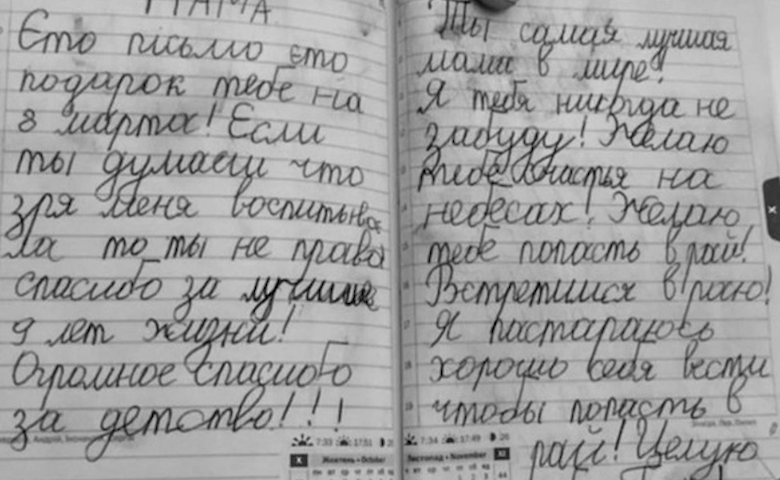 МАМА
Єто письмо єто
подарок тебе на
8 марта! Если
ты думаеш что
зря меня воспитыва
ла то ты не права
спасибо за лучшие
9 лет жизни!
Огромное спасибо
за детство!!!
7:33 17:51
Жовтень • October
пн вт ср чт пт сб нд
Ты самая лучшая
мама в мире!
Я тебя никогда не
забуду! Желаю
тебе счастья на
небесах! Желаю
тебе попасть в рай!
Встретимся в раю!
Я пастараюсь
хорошо себя вести
чтобы попасть в
7:34 17:49 26
рай! Целую
Листопад • November XI
44